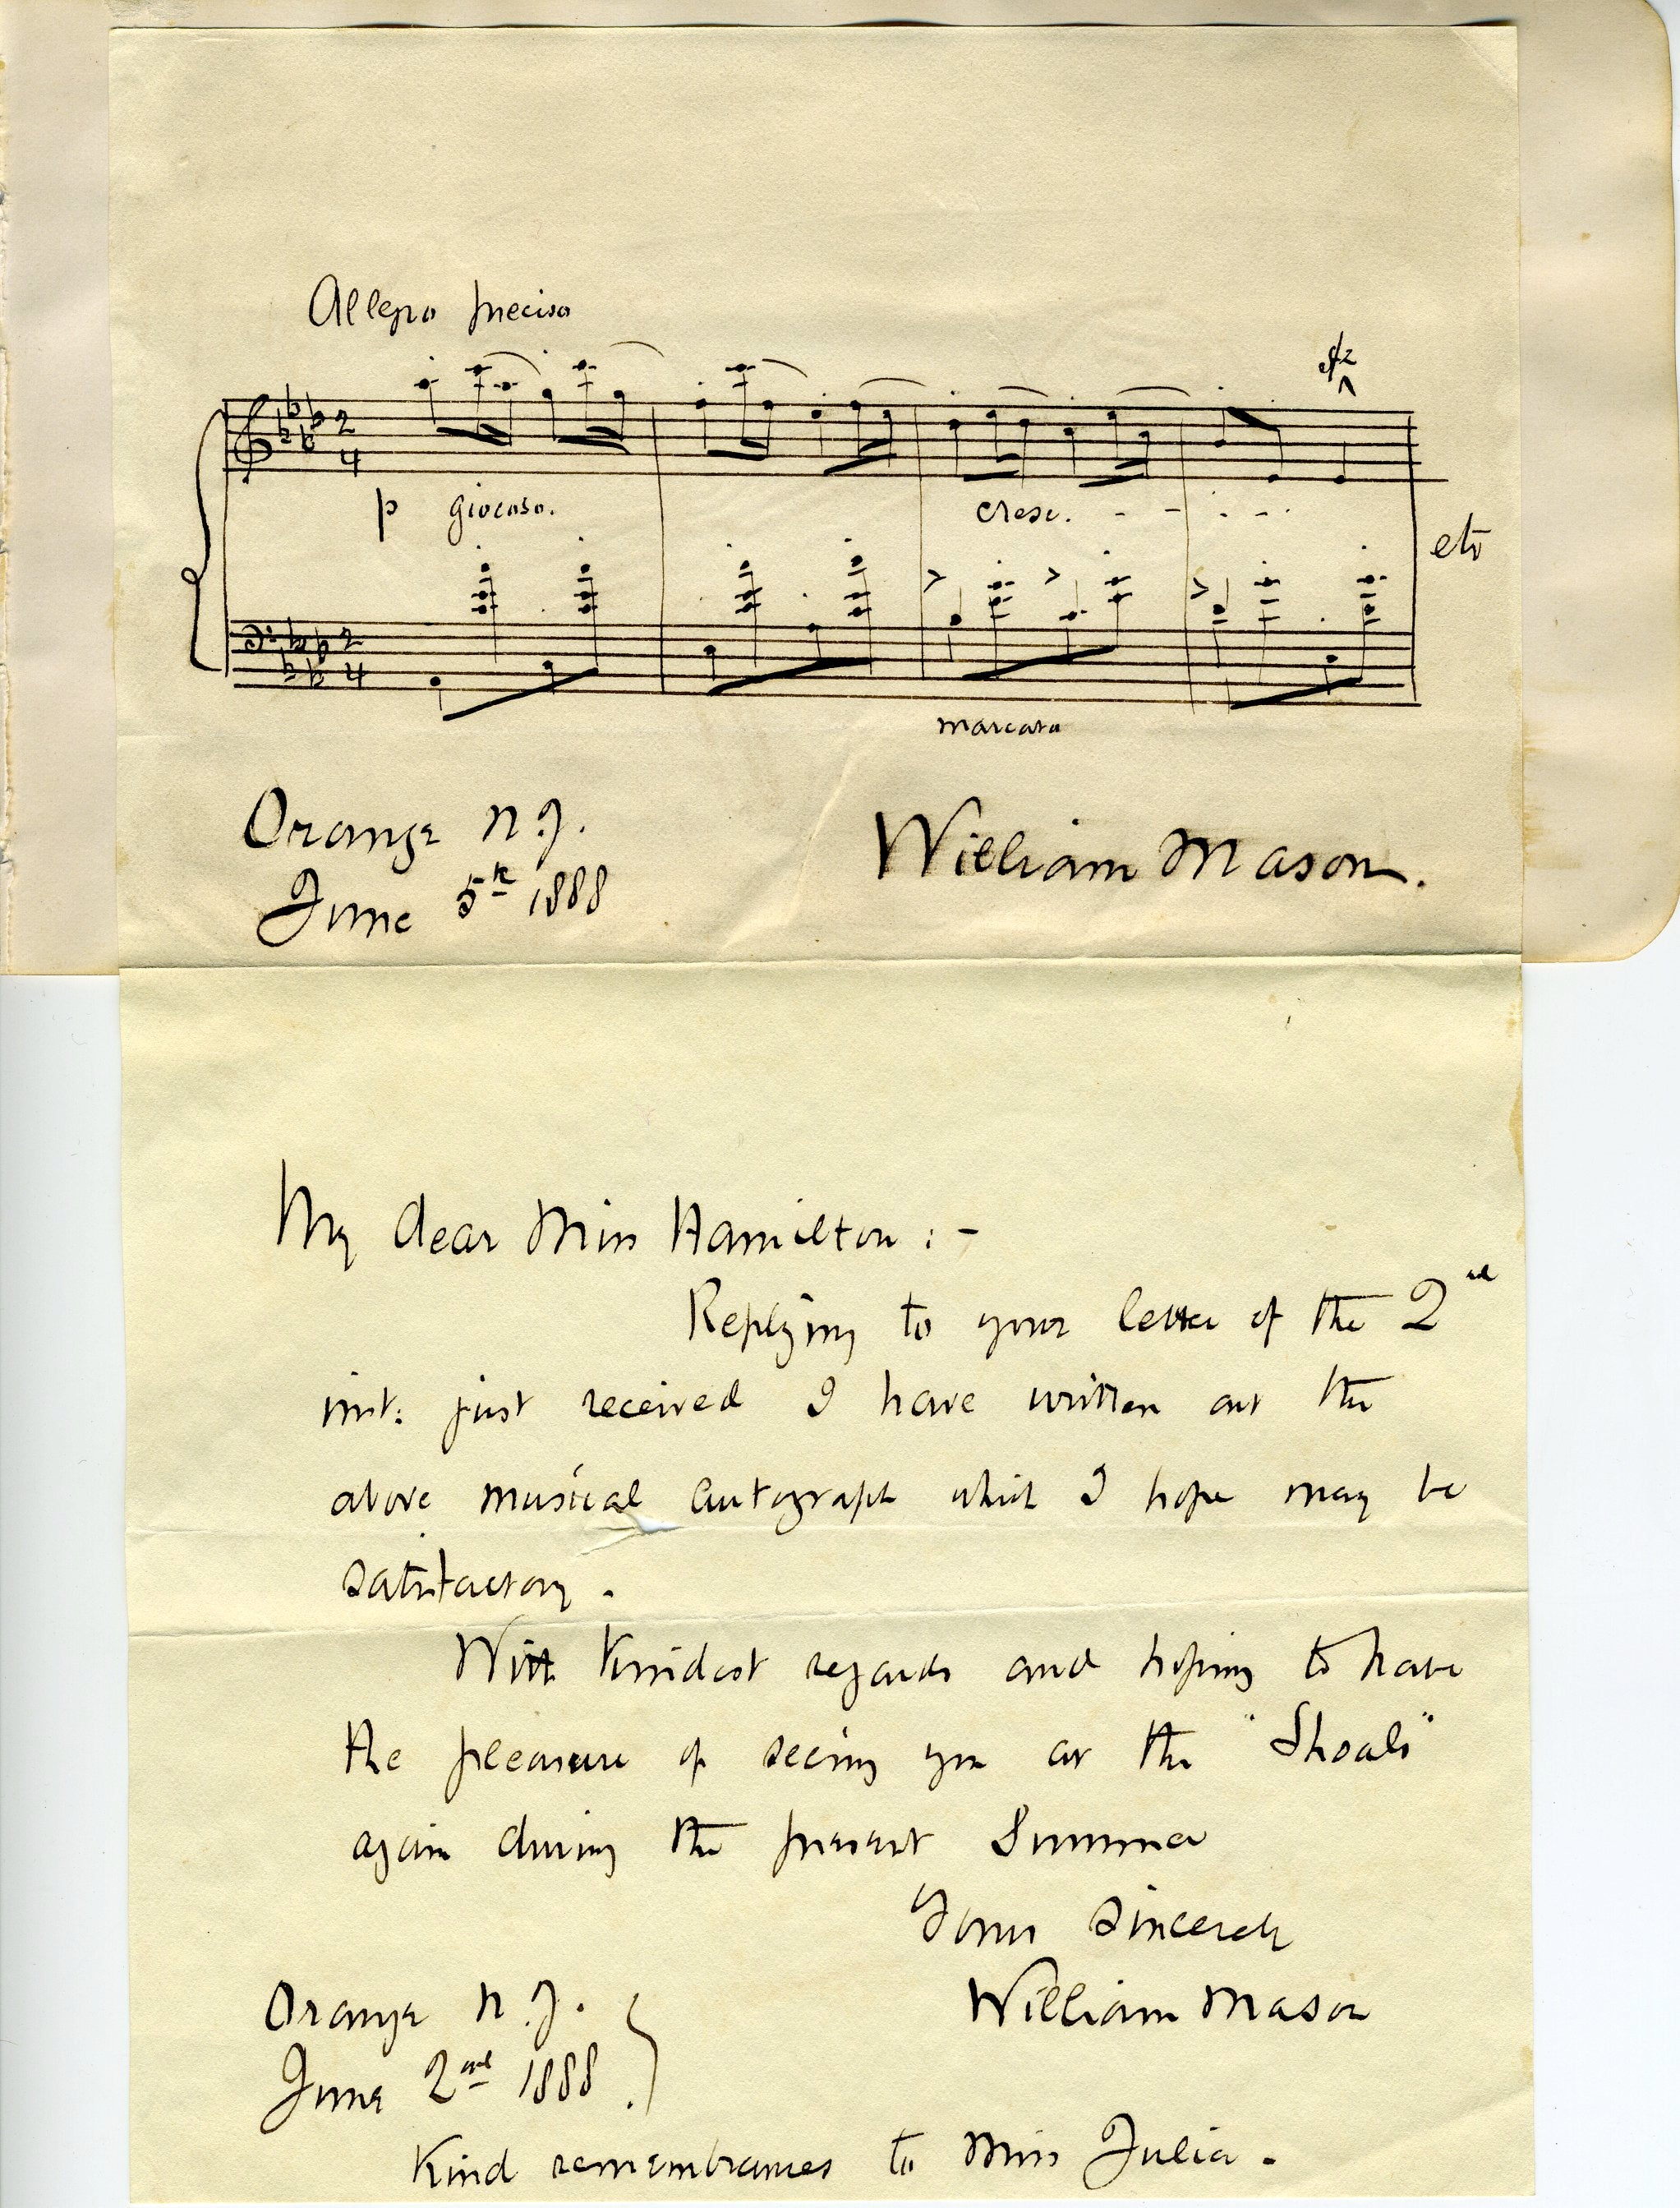 Allegro preciso
sfz
2
4
p giocoso.
cresc. - - - - -
etc
2
4
marcato
Orange N.J.
June 5th 1888
William Mason.
My dear Miss Hamilton : -
Replying to your letter of the 2nd
inst: just received I have written out the
above musical autograph which I hope may be
satisfactory.
With kindest regards and hoping to have
the pleasure of seeing you at the "Shoals"
again during the present Summer
Yours Sincerely
William Mason
Orange N.J.
June 2nd 1888.
Kind remembrances to Miss Julia.